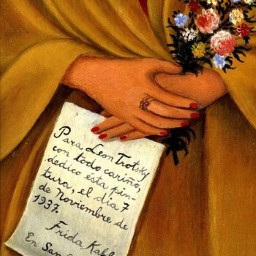 Para Leon Trotsky
con todo cariño,
dedico ésta pin-
tura, el día 7
de Noviembre de
1937.
Frida Kahl
En San